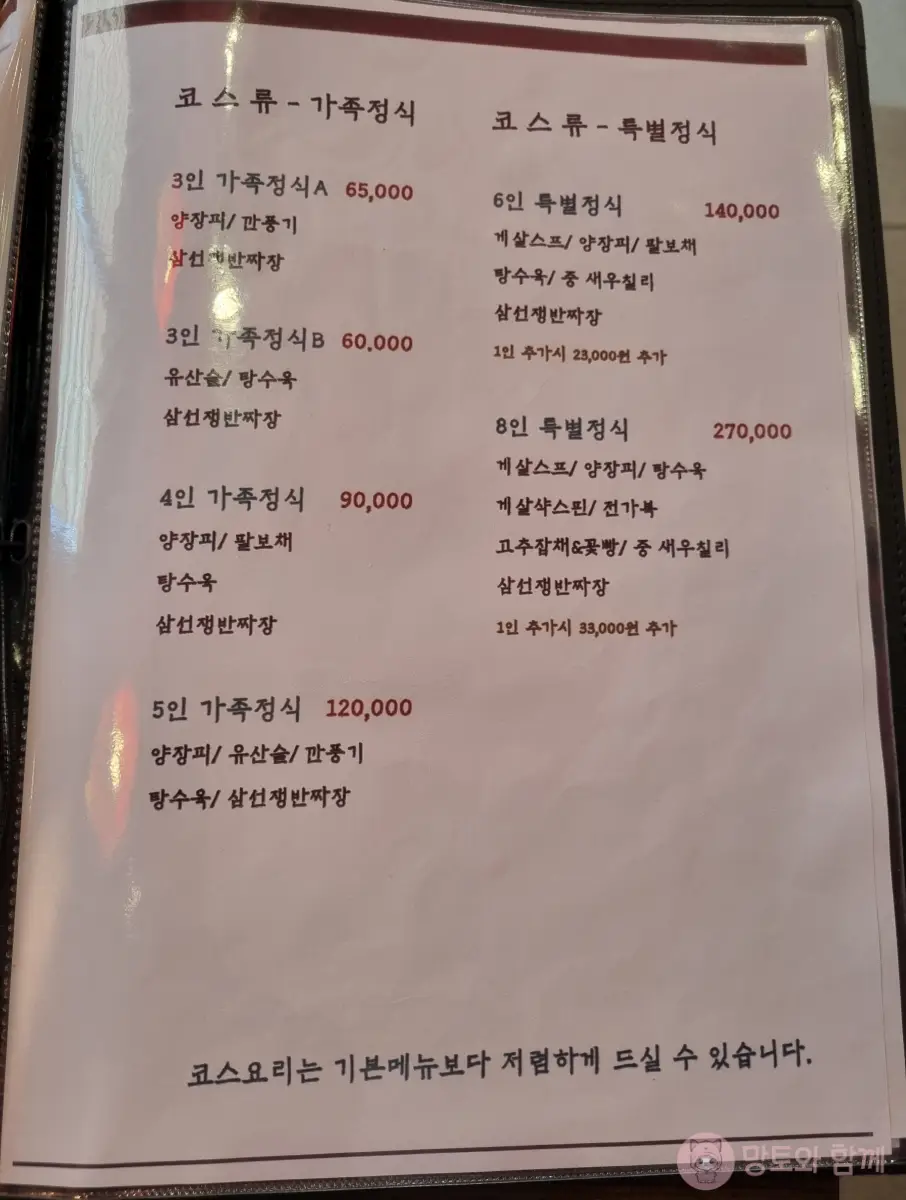 코스류 - 가족정식
3인 가족정식A 65,000
양장피/ 깐풍기
삼선쟁반짜장
3인 가족정식B 60,000
유산슬/ 탕수육
삼선쟁반짜장
4인 가족정식 90,000
양장피/ 팔보채
탕수육
삼선쟁반짜장
5인 가족정식 120,000
양장피/ 유산슬/ 깐풍기
탕수육/ 삼선쟁반짜장
코스류 - 특별정식
6인 특별정식 140,000
게살스프/ 양장피/ 팔보채
탕수육/ 중 새우칠리
삼선쟁반짜장
1인 추가시 23,000원 추가
8인 특별정식 270,000
게살스프/ 양장피/ 탕수육
게살샥스핀/ 전가복
고추잡채&꽃빵/ 중 새우칠리
삼선쟁반짜장
1인 추가시 33,000원 추가
코스요리는 기본메뉴보다 저렴하게 드실 수 있습니다.
망토와 함께